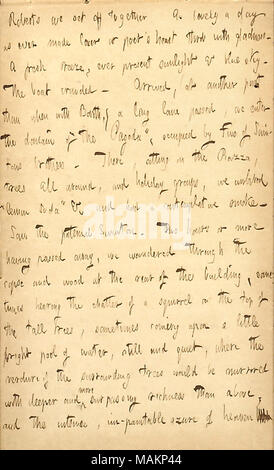 Roberts we set off together. A lovely a day
as ever made lover or poet's heart throb with gladness.
A fresh breeze, ever present sunlight & blue sky.
The boat crowded. Arrived, at another port
than when with Barth, & a long lane passed, we enter
the domain of the "Pagoda", occupied by two of
brothers. There sitting in the Piazza,
trees all around, and holiday groups, we imbibed
"lemon soda" &c and had a smoke.
Saw the paternal Swinton. Two hours or more
having passed away, we wandered through the
copse and wood at the rear of the building, some
times hearing the chatter of a squirrel on the top of
the tall trees, sometimes coming upon a little
bright pool of water, still and quiet, where the
verdure of the surrounding trees would be mirrored
with deeper and more surpassing richness than above,
and the intense, un-paintable azure of heaven
alamy
alamy
Image ID: MAKP44
www.alamy.com